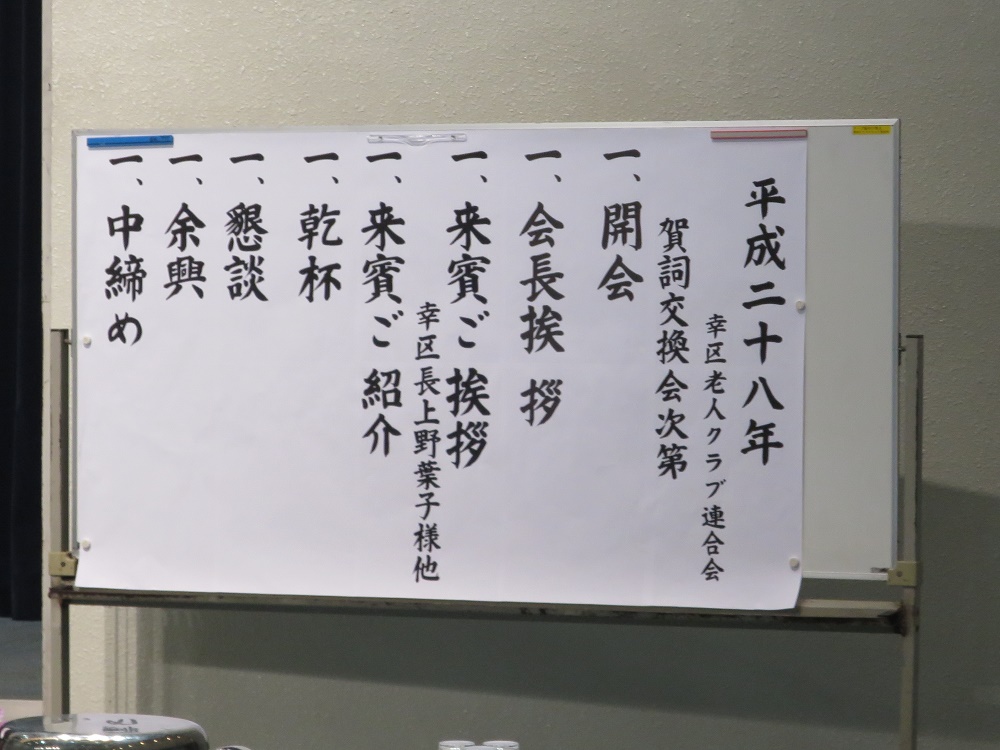 平成二十八年
幸区老人クラブ連合会
賀詞交換会次第
一、開会
一、会長挨拶
一、来賓ご挨拶
幸区長上野葉子様他
一、来賓ご紹介
一、乾杯
一、懇談
一、余興
一、中締め